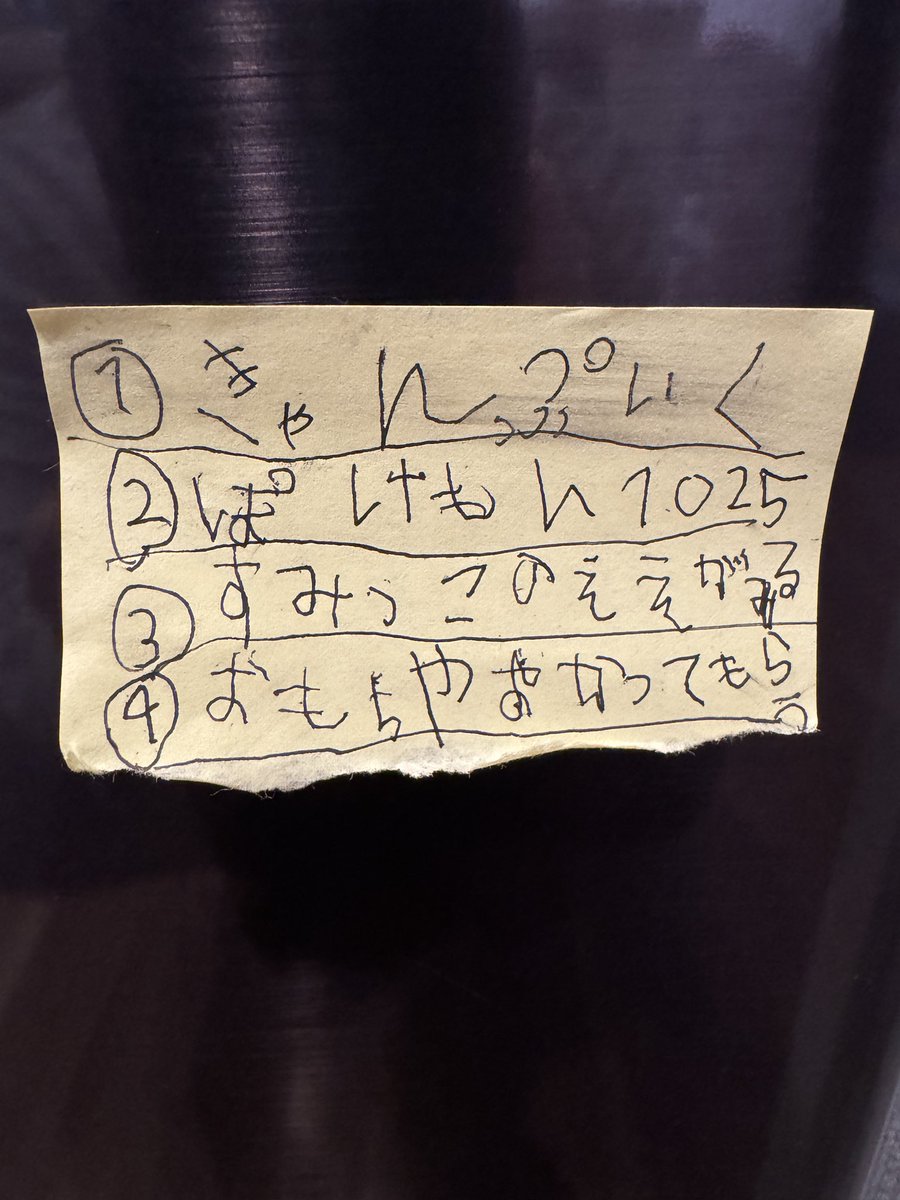 ① きゃんぷいく
② ぽけもん1025
③ すみっこのええがみる
④ おもちゃおかってもらう